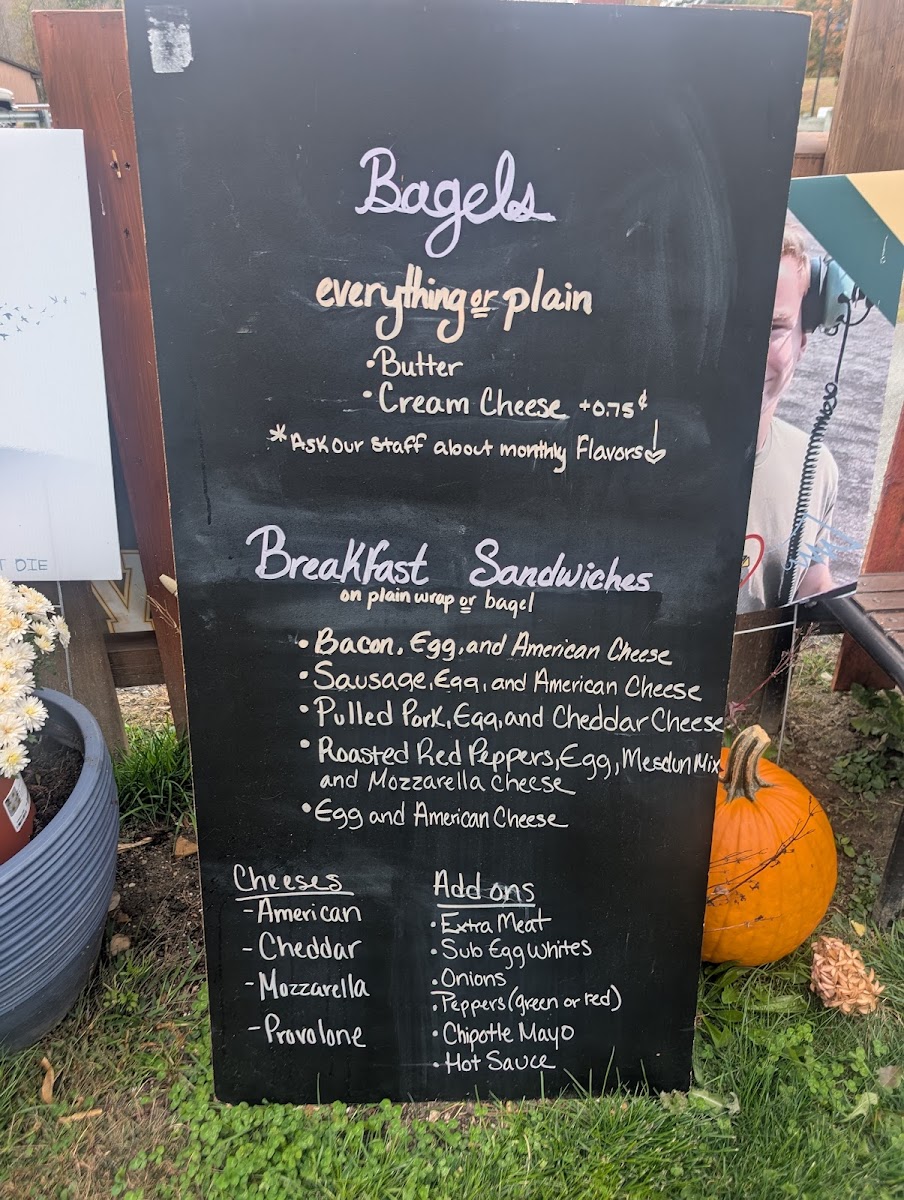 Bagels
everything or plain
•Butter
•Cream Cheese +0.75¢
*Ask our staff about monthly Flavors
Breakfast Sandwiches
on plain wrap or bagel
•Bacon, Egg, and American Cheese
•Sausage, Egg, and American Cheese
•Pulled Pork, Egg, and Cheddar Cheese
•Roasted Red Peppers, Egg, Mesclun Mix
and Mozzarella Cheese
•Egg and American Cheese
Cheeses
-American
-Cheddar
-Mozzarella
-Provolone
Add ons
•Extra Meat
•Sub Egg Whites
•Onions
•Peppers (green or red)
•Chipotle Mayo
•Hot Sauce
DIE